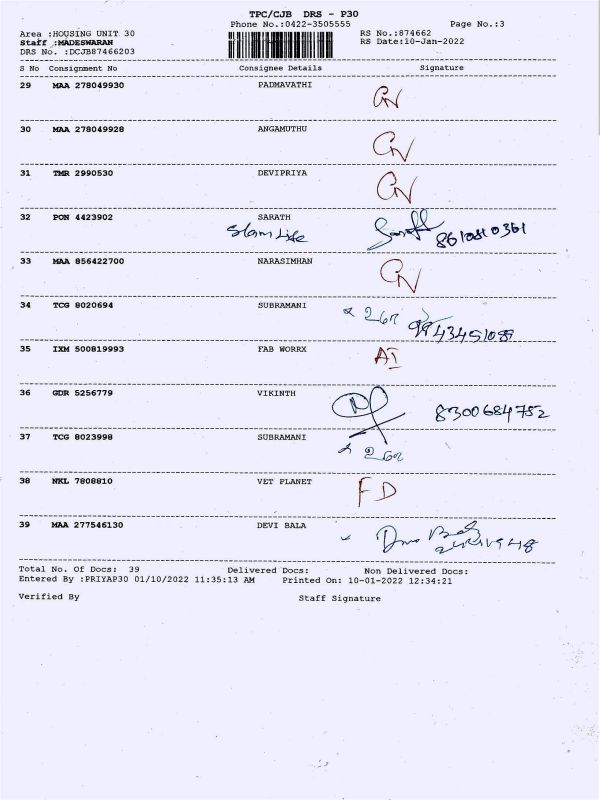 TPC/CJB DRS - P30
Phone No.:0422-3505555 Page No.:3
Area :HOUSING UNIT 30 RS No.:874662
Staff :MADESWARAN RS Date:10-Jan-2022
DRS No. :DCJB87466203
S No Consignment No Consignee Details Signature
29 MAA 278049930 PADMAVATHI
30 MAA 278049928 ANGAMUTHU
31 TMR 2990530 DEVIPRIYA
32 PON 4423902 SARATH
8610810361
33 MAA 856422700 NARASIMHAN
34 TCG 8020694 SUBRAMANI
35 IXM 500819993 FAB WORRX AI
36 GDR 5256779 VIKINTH 8300684752
37 TCG 8023998 SUBRAMANI
38 NKL 7808810 VET PLANET FD
39 MAA 277546130 DEVI BALA
Total No. Of Docs: 39 Delivered Docs: Non Delivered Docs:
Entered By :PRIYAP30 01/10/2022 11:35:13 AM Printed On: 10-01-2022 12:34:21
Verified By Staff Signature